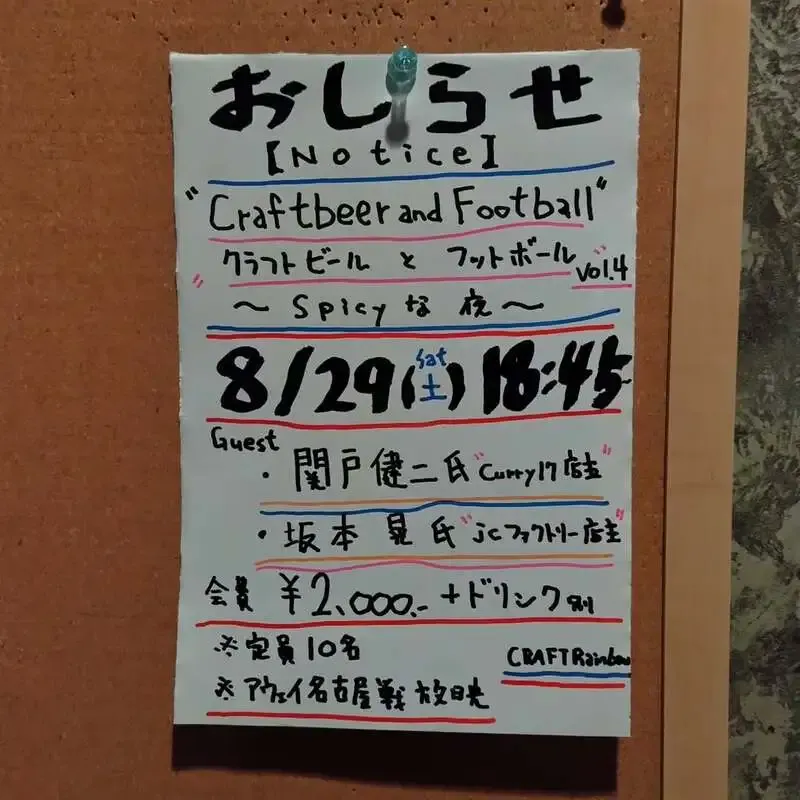 おしらせ
【Notice】
"Craftbeer and Football"
"クラフトビール と フットボール" vol.4
～ Spicyな 夜 ～
8/29(土) Sat 18:45
Guest
・関戸健二氏 "Curry17店主"
・坂本 晃 氏 "jcファクトリー店主"
会費 ¥2,000.- +ドリンク別
※定員10名
CRAFTRainbow
※アウェイ名古屋戦 放映